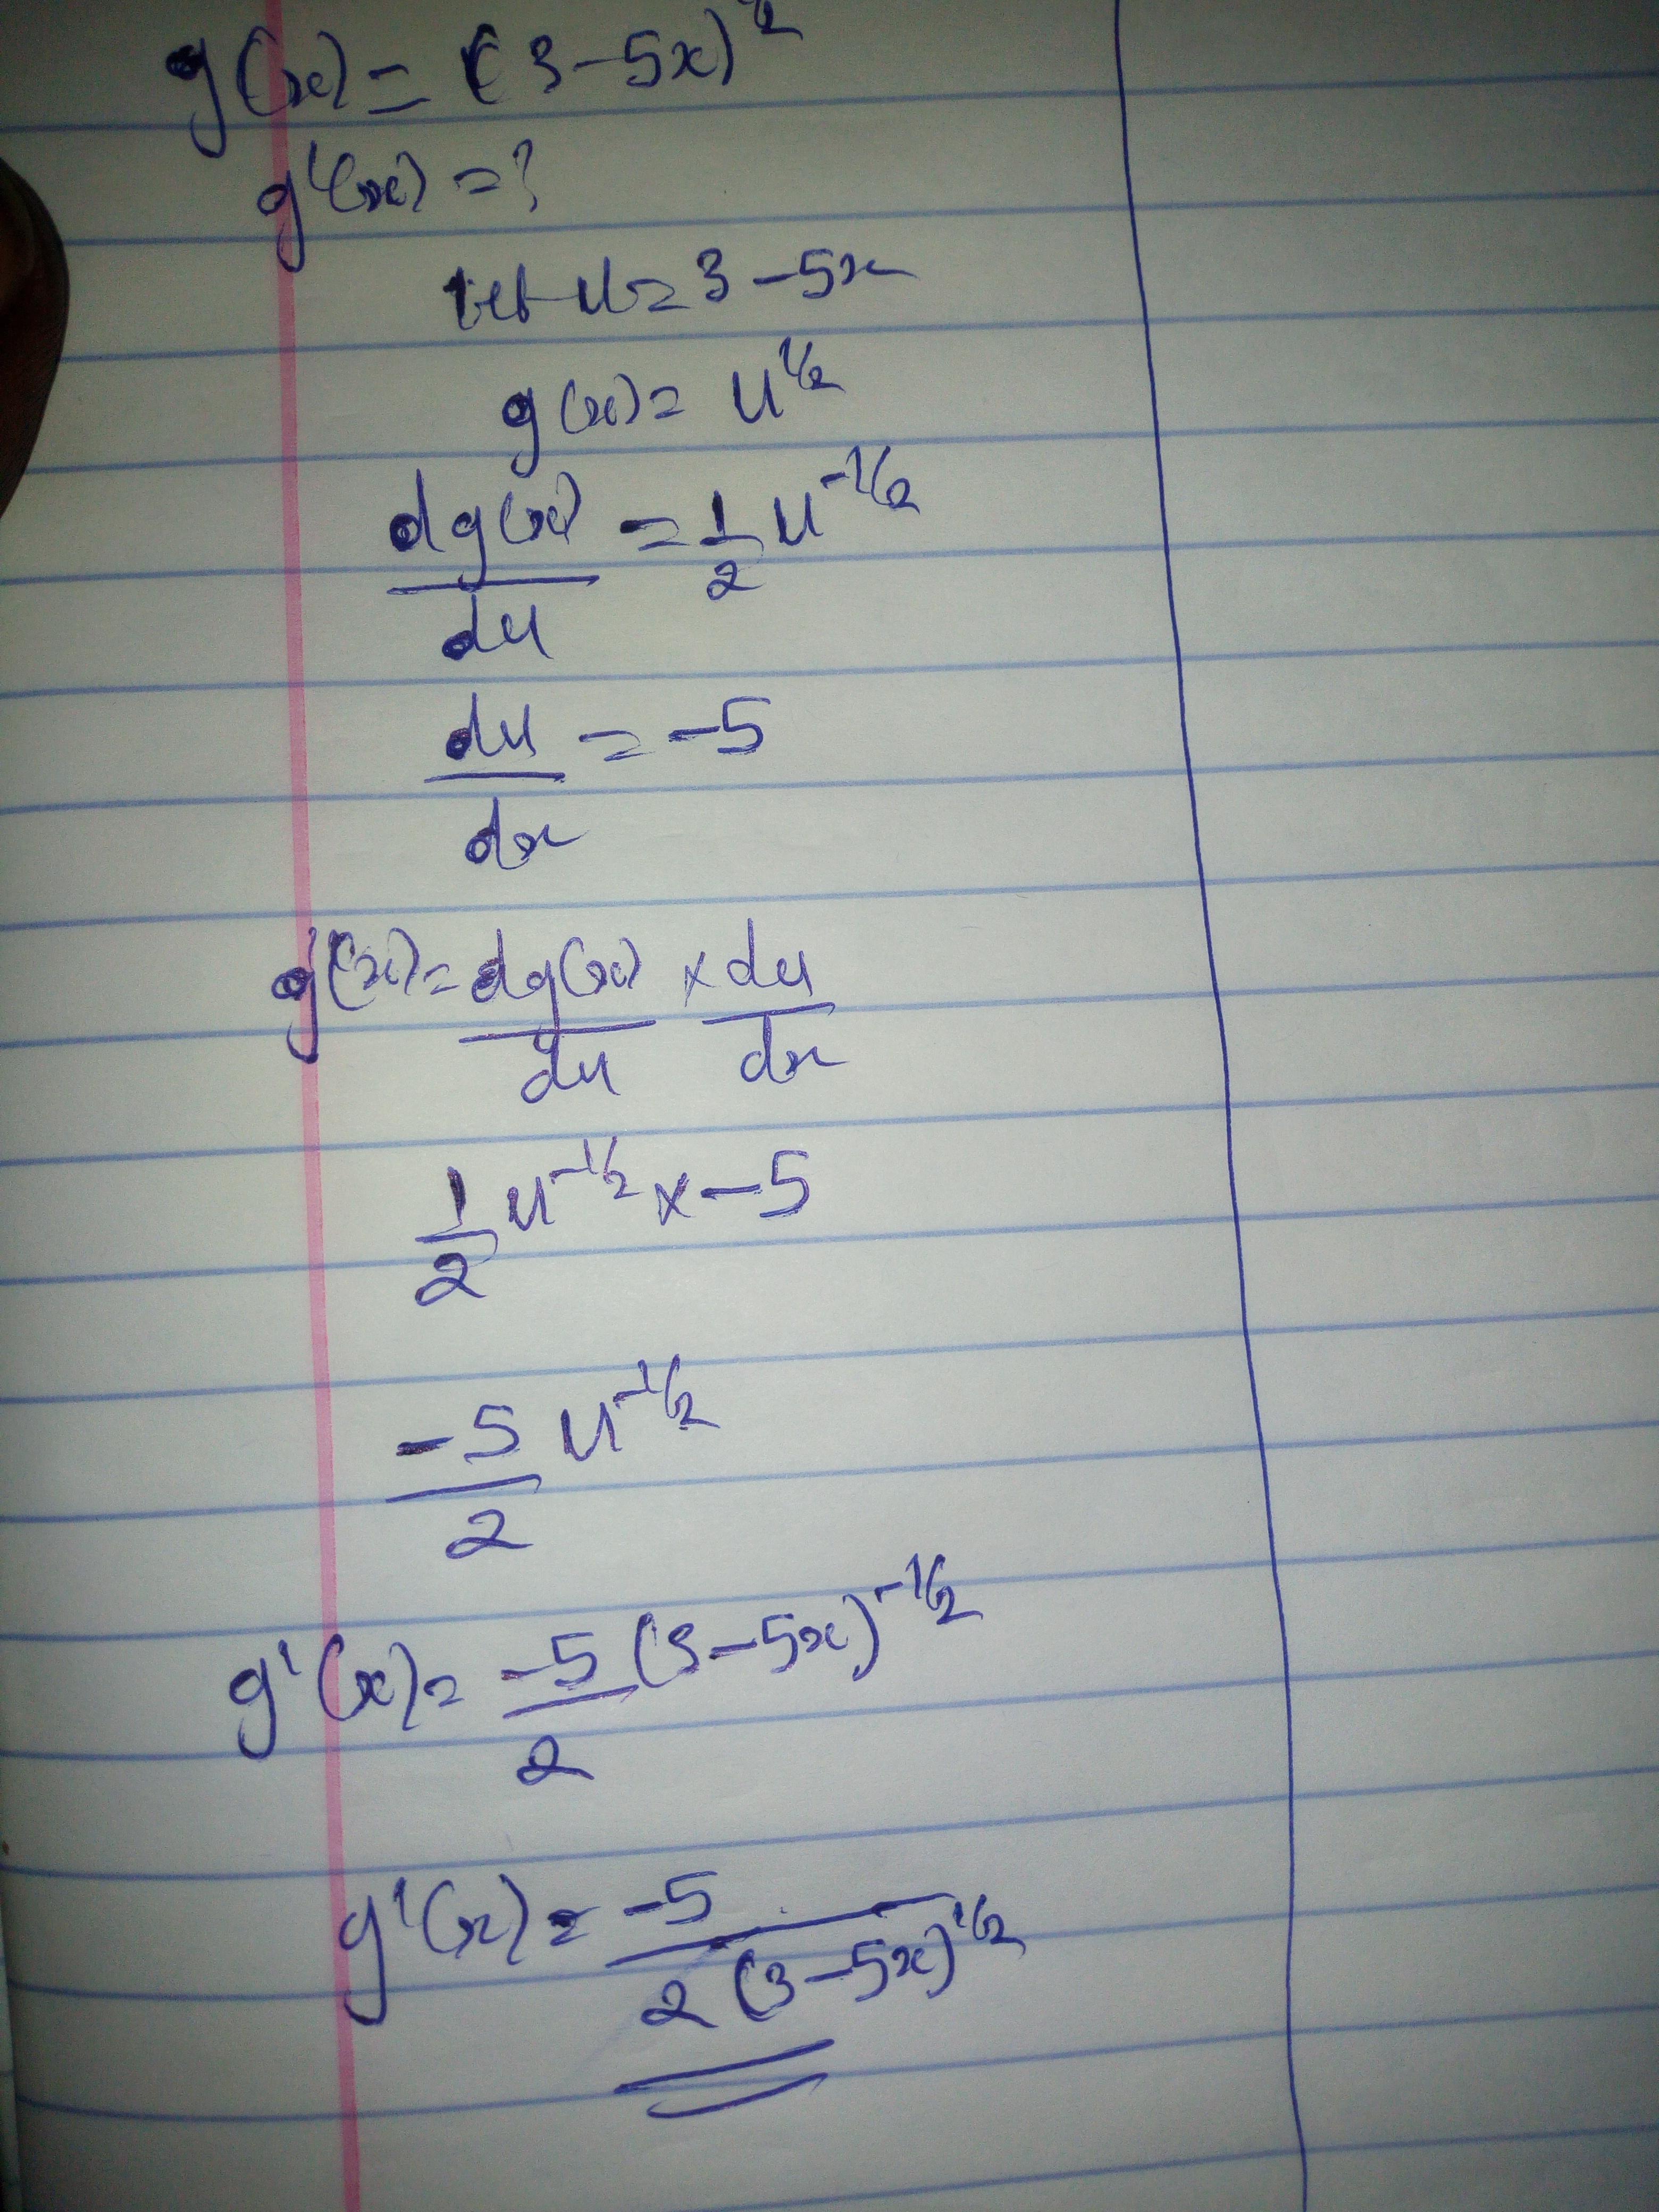 g(x) = (3-5x)^½
g'(x) = ?
let u = 3-5x
g(x) = u^½
dg(x)/du = 1/2 u^-½
du/dx = -5
g'(x) = dg(x)/du × du/dx
1/2 u^-½ × -5
-5/2 u^-½
g'(x) = -5/2 (3-5x)^-½
g'(x) = -5/2(3-5x)^½